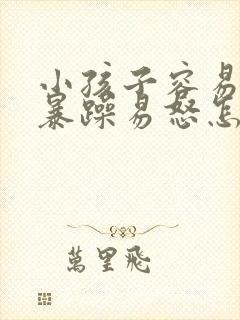 小孩子容易
暴躁易怒怎
萬里飛